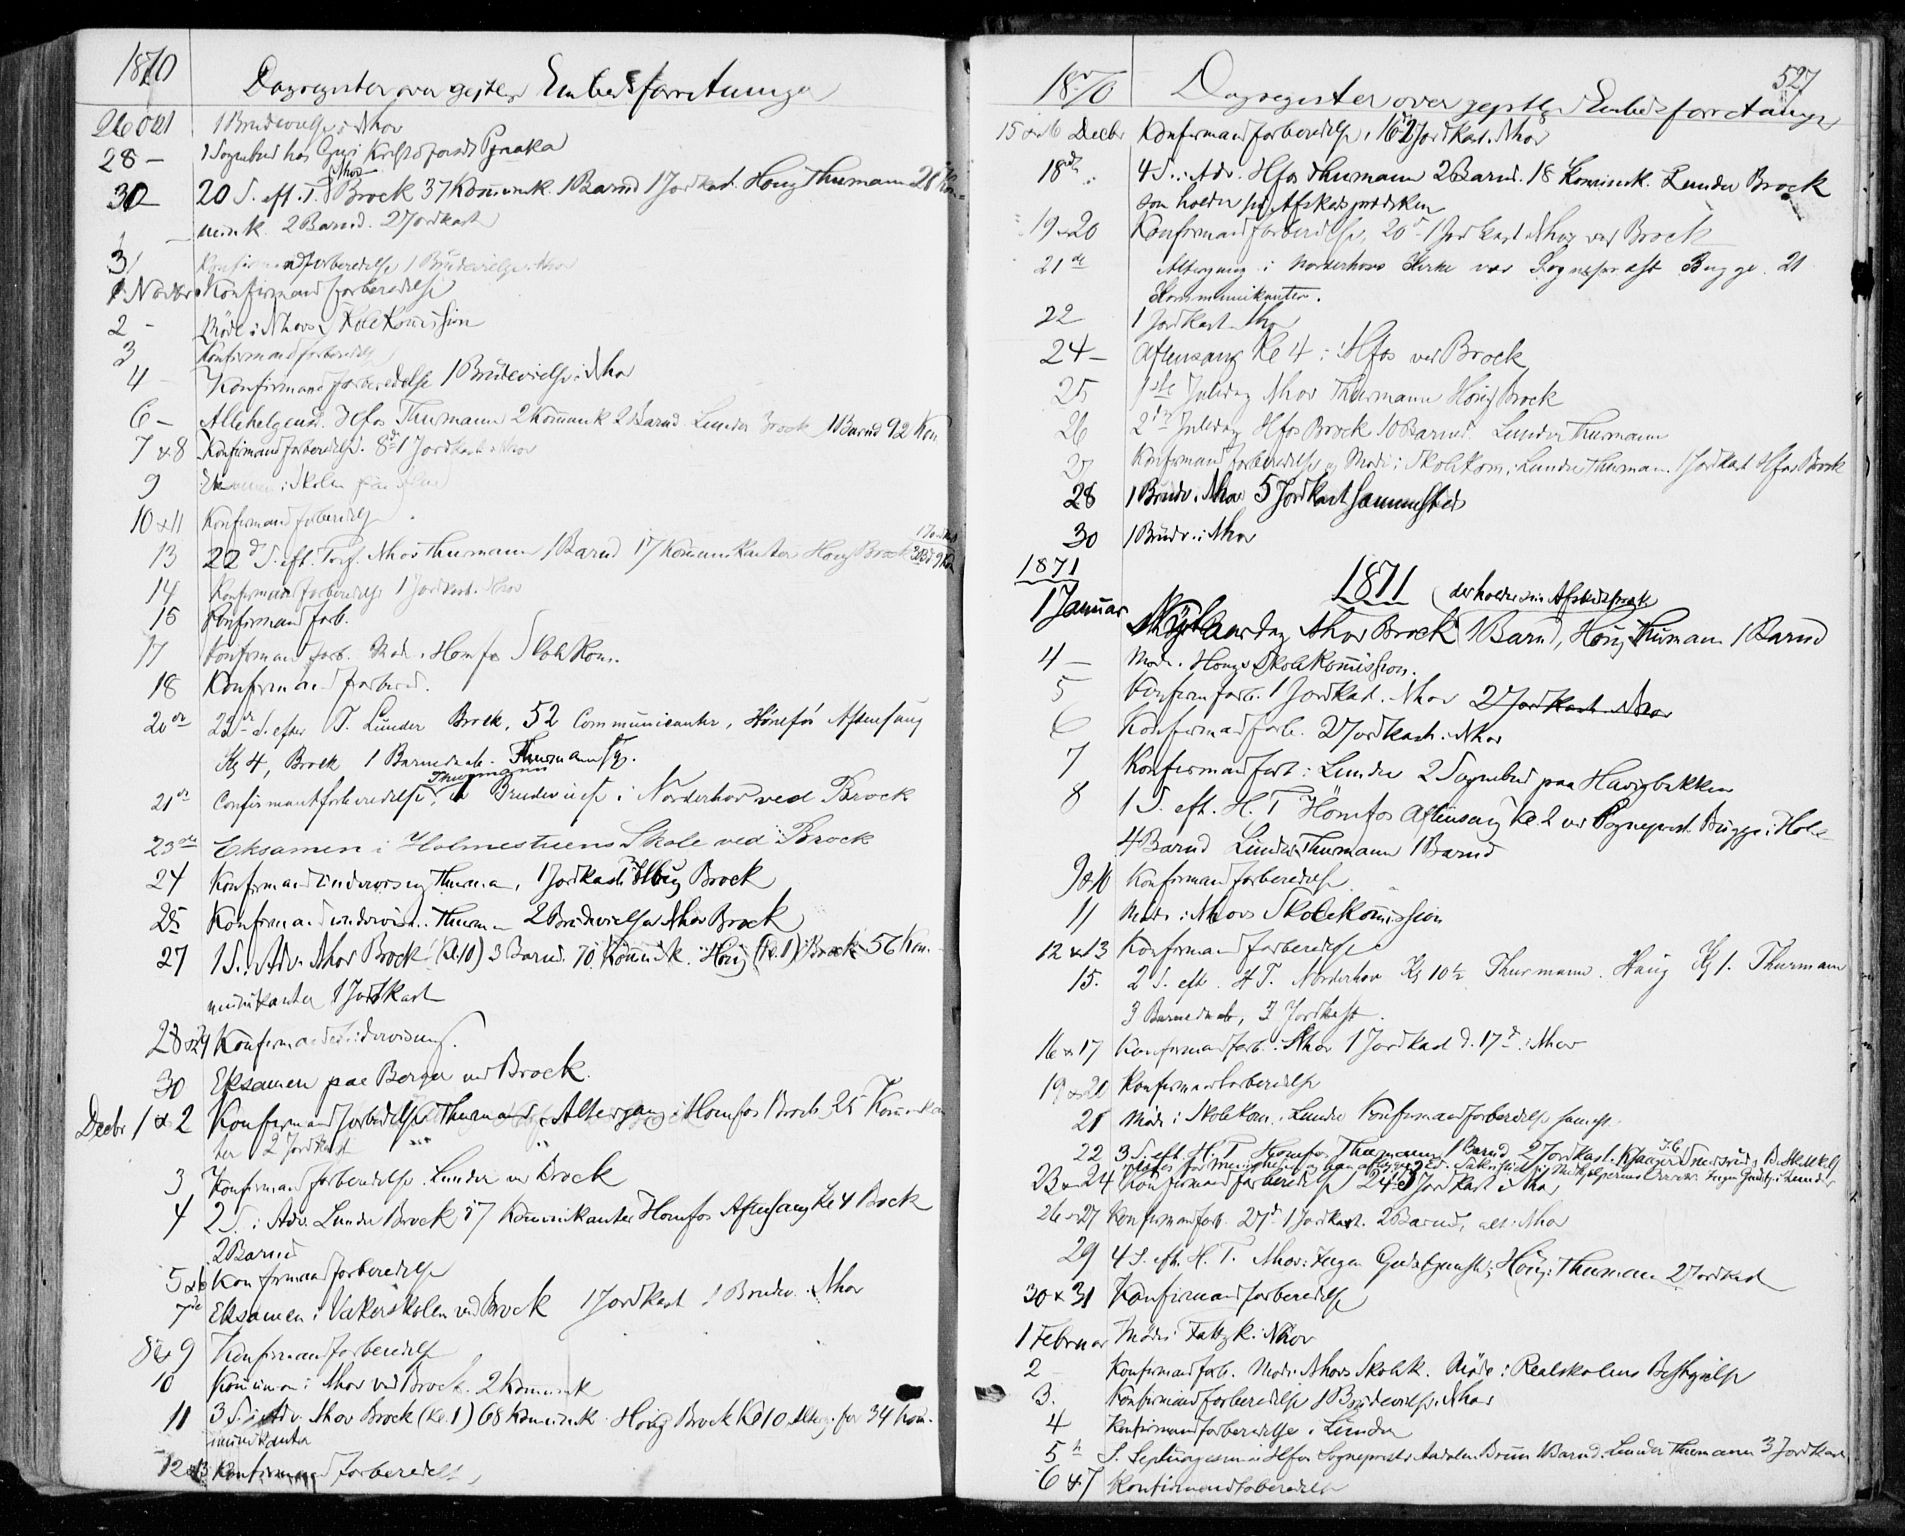 1870
Dagregister over gejstlige Embedsforretninger
26 Oct 1 Brudevielse i Nhov
28 — 1 Sognebud hos Guri Kristofersd
30 — 20 S. eft. T. Nhov Brock 37 Komunik. 1 Barnd 1 Jordkast. Houg Thurmann 28 Kom-
munik. 2 Barnd. 2 Jordkast
31 Konfirmandforberedelse 1 Brudevielse Nhov
1 Novbr Konfirmandforberedelse
2 - Möde i Nhovs Skolekomission
3 Konfirmandforberedelse
4 - Konfirmandforberedelse 1 Brudevielse i Nhov
6 - Allehelgensd. Hfos Thurmann 2 Komunik 2 Barnd Lunder Brock 1 Barnd 92 Kom
7 & 8 Konfirmandforberedelse. 8de 1 Jordkast i Nhov
9 Eksamen i Skolen paa
10 & 11 Konfirmandforberedelse
13 22d S. eft. Tref. Nhov Thurmann 1 Barnd 17 Komunikanter Houg Brock
14 Konfirmandforberedelse 1 Jordkast. Nhov
15 Konfirmandforb.
17 Konfirmandforb. Möde i Honefos Skolekom.
18 Konfirmandforbered.
20de 23de S. efter T. Lunder Brock, 52 Communicanter, Hönefos Aftensang
Kl 4, Brock 1 Barnedaab. Thurmann syg.
21de Confirmantforberedelse, Thurmann en Brudevielse i Norderhov ved Brock
23de Eksamen i Holmestuens Skole ved Brock
24 Konfirmandundervisning Thurman, 1 Jordkast i Houg Brock
25 Konfirmandundervisn. Thurman 2 Brudevielser Nhov Brock
27 1 S. i Adv. Nhov Brock (Kl. 10) 3 Barnd. 70 Komunik. Houg (Kl. 1) Brock 56 Kom-
munikanter 1 Jordkast
28 & 29 Konfirmandundervisning.
30 Eksamen paa Berger ved Brock.
Decbr 1 & 2 Konfirmandforberedelse Thurmann, Altergang i Honefos Brock 25 Komunikan
ter 2 Jordkast
3 Konfirmandforberedelse. Lunder ved Brock
4 2 S. i Adv. Lunder Brock 57 Komunikanter Honefos Aftensang Kl 4 Brock
2 Barnd
5 & 6 Konfirmandforberedelse
7de Eksamen i Vakerskolen ved Brock 1 Jordkast 1 Brudev. Nhov
8 & 9 Konfirmandforberedelse
10 Komunion i Nhov ved Brock. 2 Komunik
11 3 S. i Adv. Nhov Brock (Kl. 1) 68 Komunik. Houg Brock Kl 10 Alterg. for 34 Kom-
munikanter
12 & 13 Konfirmandforberedelse
1870
Dagregister over gejstlige Embedsforretninger
527
15 & 16 Decbr Konfirmandforberedelse, 16de 2 Jordkast. Nhov
18de 4 S. i Adv. Hfos Thurmann 2 Barnd. 18 Komunik. Lunder Brock
som holder sin Afskedsprædiken
19 & 20 Konfirmandforberedelse, 20de 1 Jordkast i Nhov ved Brock
21de Altergang i Norderhovs Kirke ved Sogneprest Bugge. 21
Kommunikanter.
22 1 Jordkast Nhov
24 — Aftensang Kl 4 i Hfos ved Brock
25 1ste Juledag Nhov Thurmann Houg Brock
26 2den Juledag Hfos Brock 10 Barnd. Lunder Thurmann
27 Konfirmandforberedelse og Möde i Skolekom. i Lunder Thurmann. 1 Jordkast Hfos Brock
28 1 Brudv. Nhov 5 Jordkast sammesteds
30 1 Brudv. i Nhov
1871
1871
1 Januar Nytaarsdag Nhov Brock (der holder sin Afskedspræk 1 Barnd, Houg Thurmann 1 Barnd
4 — Möde i Hougs Skolekomission.
5 Konfirmforb. 1 Jordkast. Nhov 2 Jordkast Nhov
6 Konfirmandforb. 2 Jordkast i Nhov
7 Konfirmandforb i Lunder 2 Sognebud paa Haugbakken
8 1 S. eft. H. T Hönefos Aftensang Kl. 2 ved Sogneprest Bugge i Hole
4 Barnd Lunder Thurmann 1 Barnd
9 & 10 Konfirmandforberedelse
11 Möde i Nhovs Skolekomission
12 & 13 Konfirmandforberedelse
15. 2 S. eft. H. T. Norderhov Kl 10½ Thurmann. Haug Kl 1. Thurmann
3 Barnedaab, 3 Jordkast.
16 & 17 Konfirmandforb. Nhov 1 Jordkast d. 17de i Nhov
19 & 20 Konfirmantforberedelse
21 Möde i Skolekom. Lunder Konfirmandforberedelse samest.
22 3 S. eft. H. T. Honefos Thurmann 1 Barnd 2 Jordkast.
23 & 24 Konfirmandforberedelse 24de 3 Jordkast i Nhov
26 & 27 Konfirmandforb. 27de 1 Jordkast. 2 Barnd, alt i Nhov
29 4 S. eft. H. T. Nhov: Ingen Gudstjeneste; Houg: Thurmann 2 Jordkast
30 & 31 Konfirmandforberedelse
1 Februar Möde i Fattigk. i Nhov
2 Konfirmandforb. Möde i Nhovs Skolek. Möde i Realskolens Bestyrelse
3. Konfirmandforberedelse 1 Brudevielse Nhov
4 Konfirmandforberedelse i Lunder
5te S. Septuagesima i Hfos Sogneprest i Aadalen Bruun 1 Barnd. Lunder Thurmann 3 Jordkast
6 & 7 Konfirmandforberedelse